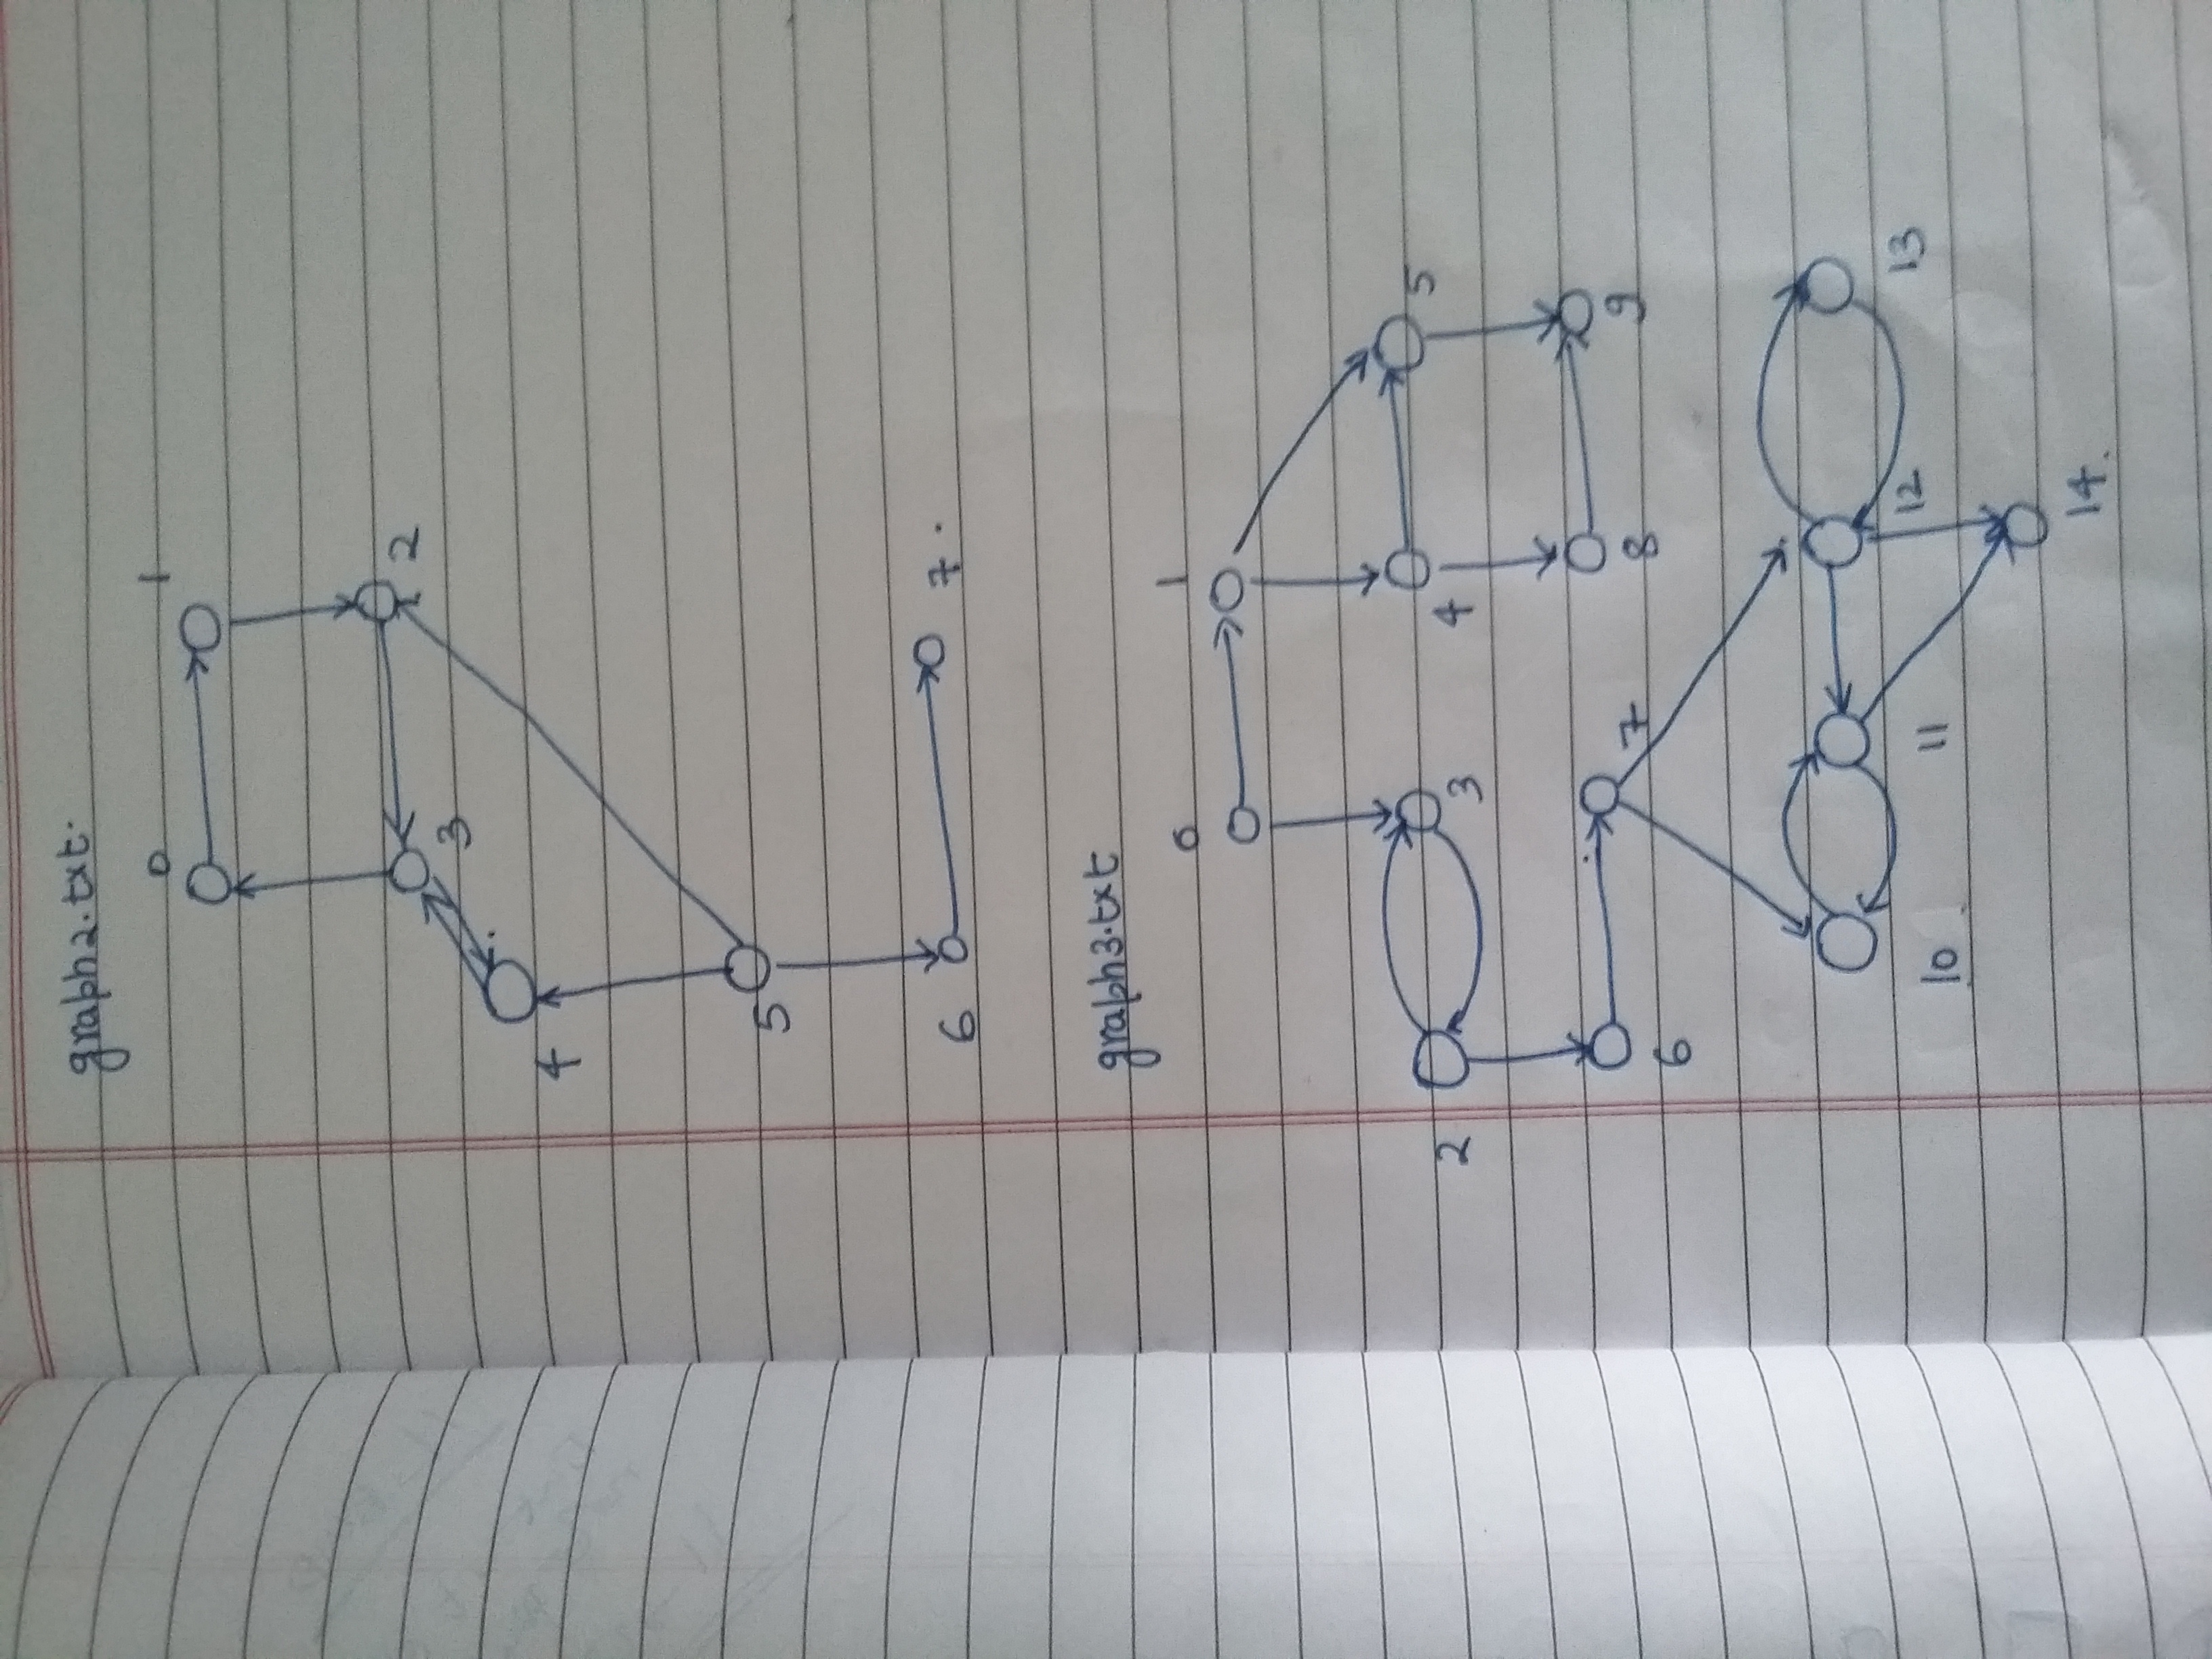 graph2.txt.
0 1
2
3
4
5
6 7.
graph3.txt
0 1
2 3 4 5
6 7 8 9
10 11 12 13
14.